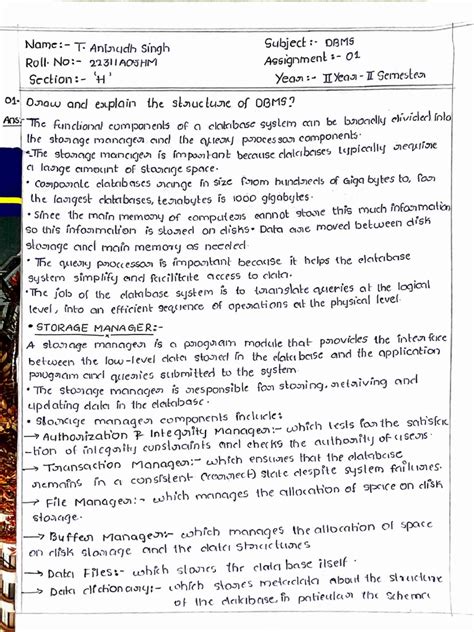 Name:- T. Anirudh Singh Subject:- DBMS
Roll. No:- 22311A05HM Assignment:- 01
Section:- 'H' Year:- II Year - II Semester
01- Draw and explain the structure of DBMS?
Ans:- The functional components of a database system can be broadly divided into
the storage manager and the query processor components.
• The storage manager is important because databases typically require
a large amount of storage space.
• Corporate databases range in size from hundreds of Giga bytes to, for
the largest databases, terabytes is 1000 gigabytes.
• Since the main memory of computers cannot store this much information
so this information is stored on disks. Data are moved between disk
storage and main memory as needed.
• The query processor is important because it helps the database
system simplify and facilitate access to data.
• The job of the database system is to translate queries at the logical
level, into an efficient sequence of operations at the physical level.
• STORAGE MANAGER:-
A storage manager is a program module that provides the interface
between the low-level data stored in the database and the application
program and queries submitted to the system.
• The storage manager is responsible for storing, retrieving and
updating data in the database.
• Storage manager components include:
→ Authorization & Integrity Manager:- which tests for the satisfac
-tion of integrity constraints and checks the authority of users.
→ Transaction Manager:- which ensures that the database
remains in a consistent (correct) state despite system failures.
→ File Manager:- which manages the allocation of space on disk
storage.
→ Buffer Manager:- which manages the allocation of space
on disk storage and the data structures
→ Data Files:- which stores the data base itself.
→ Data dictionary:- which stores metadata about the structure
of the database, in particular the schema